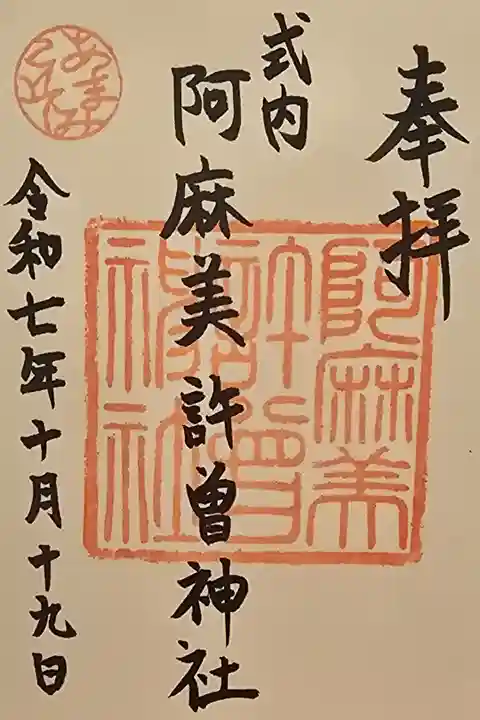 奉拝
式内
阿麻美許曽神社
阿麻美
許曽
神社
令和七年十月十九日